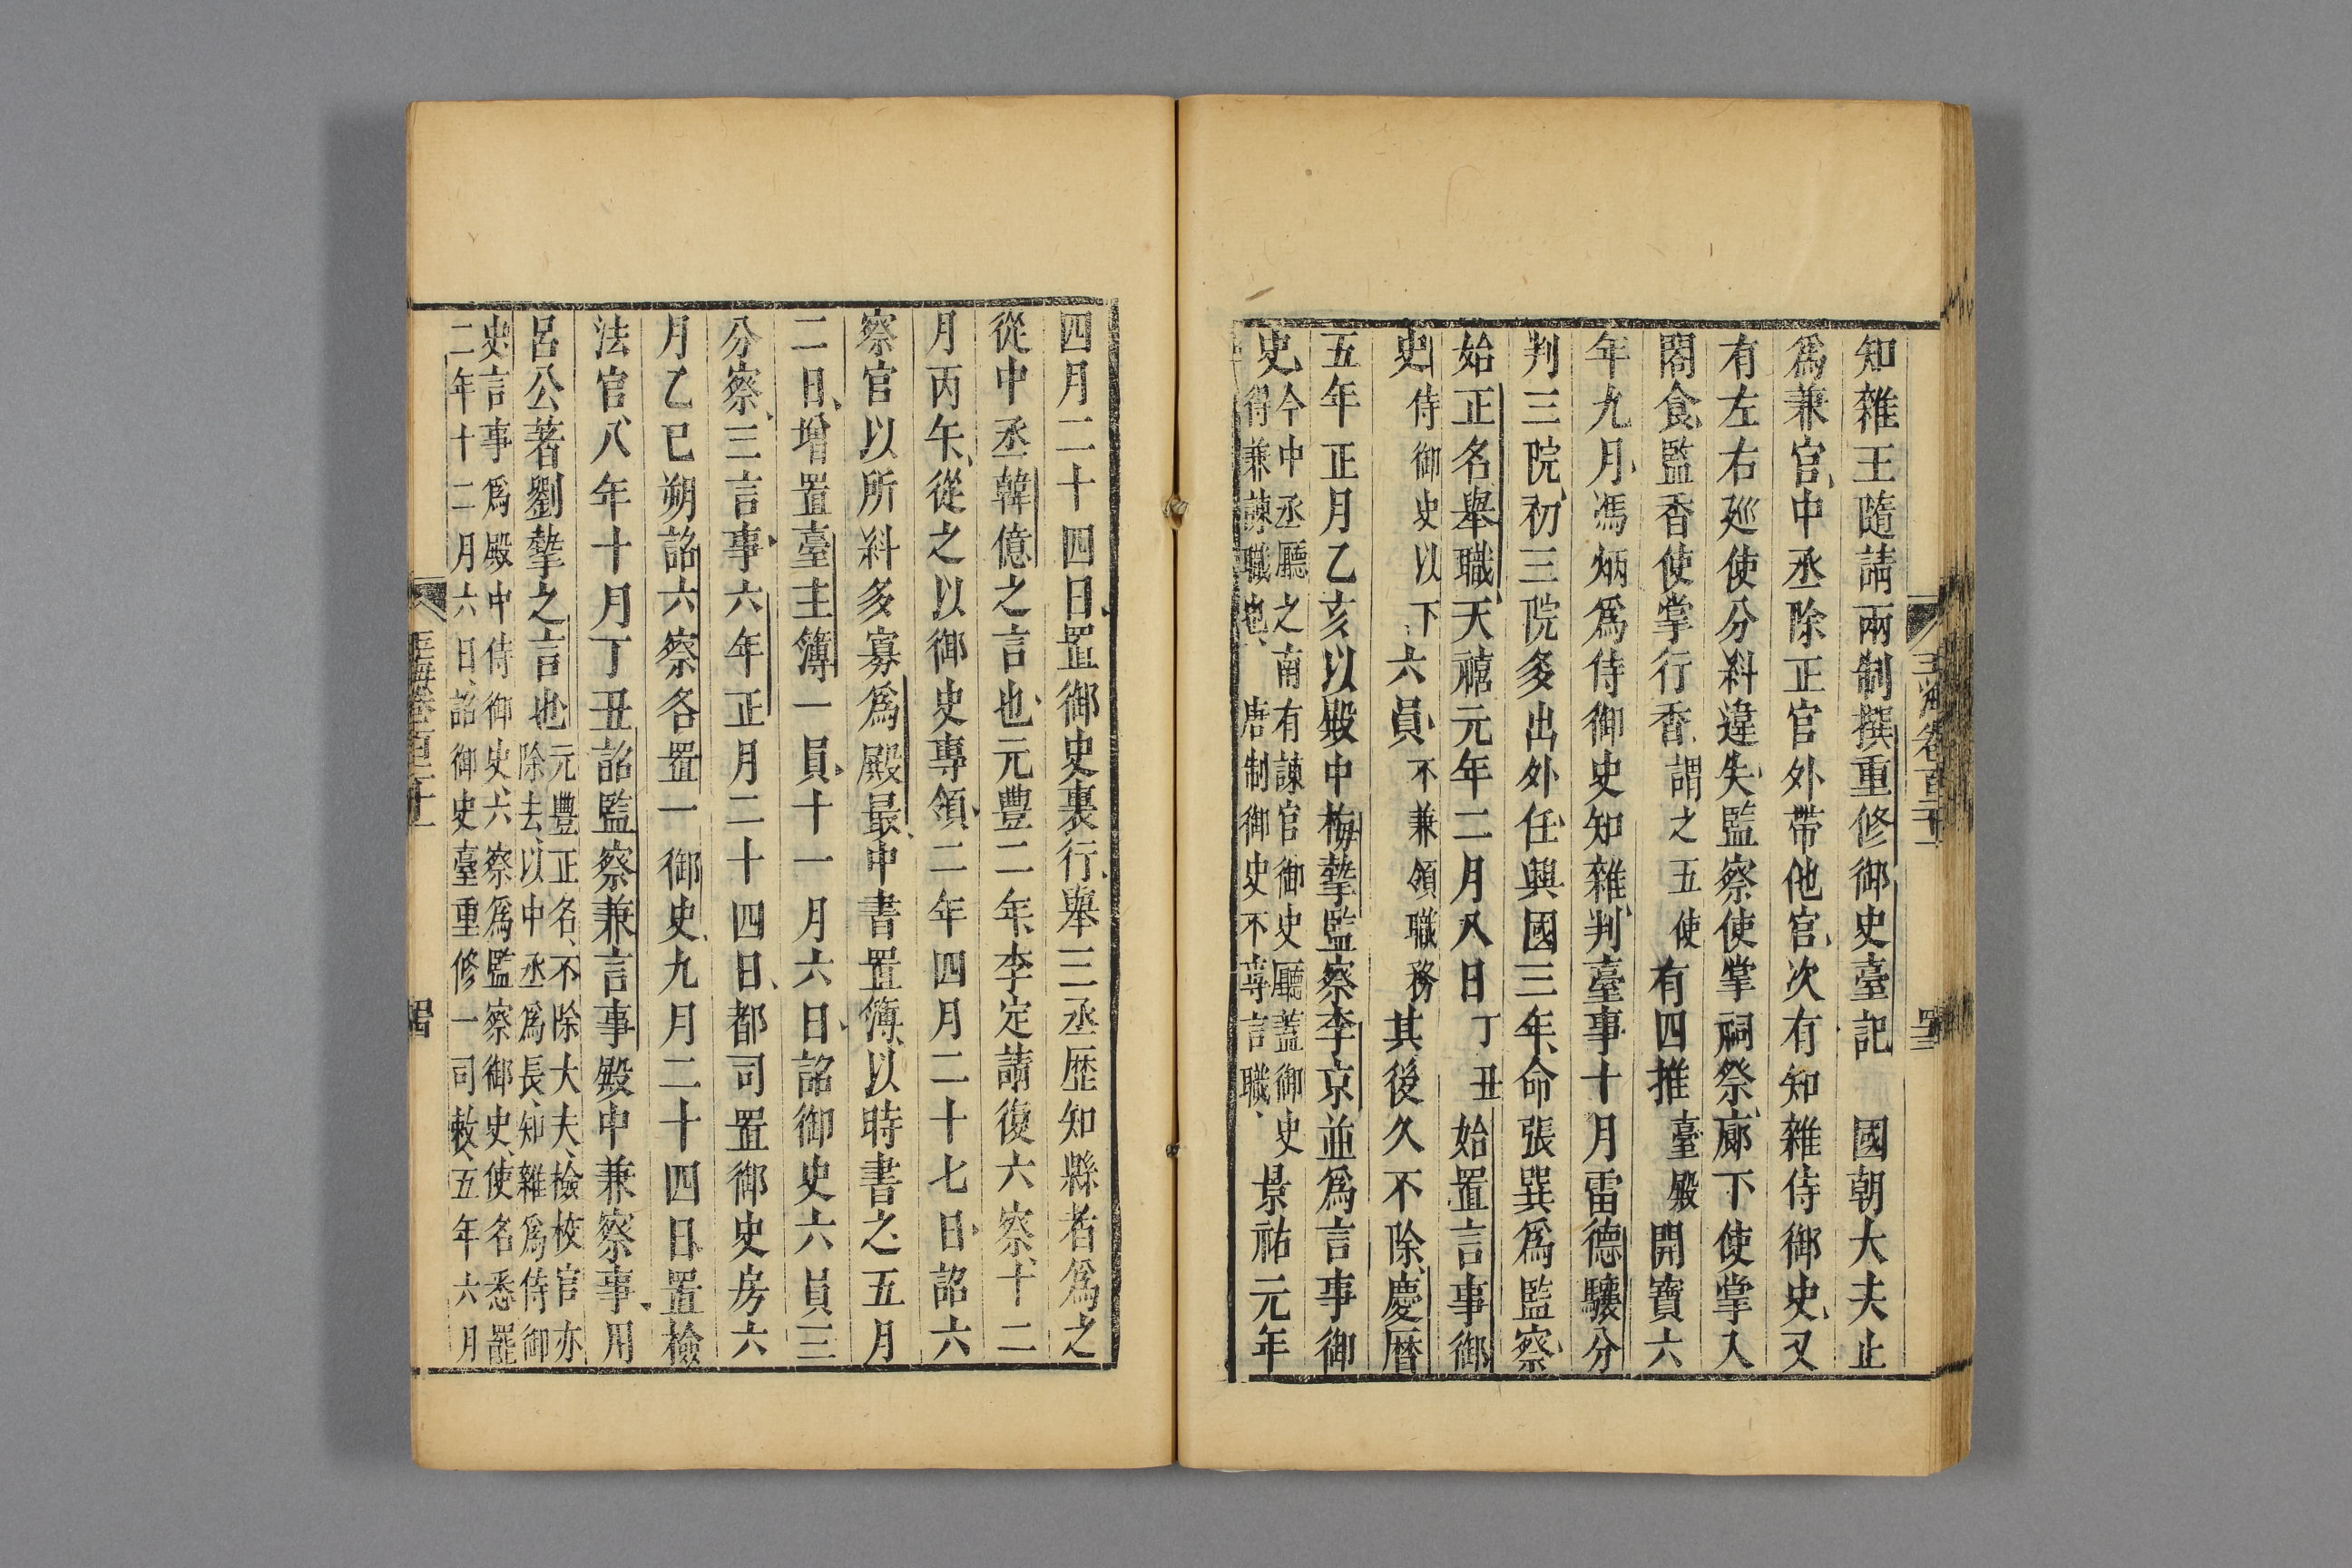 知雜王隨請兩制撰重修御史臺記　國朝大夫止
爲兼官中丞除正官外帶他官次有知雜侍御史又
有左右廵使分糾違失監察使掌祠祭廊下使掌入
閤食監香使掌行香謂之五使有四推臺殿開寶六
年九月馮炳爲侍御史知雜判臺事十月雷德驤分
判三院初三院多出外任興國三年命張巽爲監察
始正名舉職天禧元年二月八日丁丑始置言事御
史侍御史以下六員不兼領職務其後久不除慶曆
五年正月乙亥以殿中梅摯監察李京並爲言事御
史今中丞廳之南有諫官御史廳蓋御史
得兼諫職也唐制御史不專言職景祐元年
四月二十四日置御史裏行舉三丞歷知縣者爲之
從中丞韓億之言也元豐二年李定請復六察十二
月丙午從之以御史專領二年四月二十七日詔六
察官以所糾多寡爲殿最中書置簿以時書之五月
二日增置臺主簿一員十一月六日詔御史六員三
分察三言事六年正月二十四日都司置御史房六
月乙巳朔詔六察各置一御史九月二十四日置檢
法官八年十月丁丑詔監察兼言事殿中兼察事用
呂公著劉摯之言也元豐正名不除大夫檢校官亦
除去以中丞爲長知雜爲侍御
史言事爲殿中侍御史六察爲監察御史使名悉罷
二年十二月六日詔御史臺重修一司敕五年六月